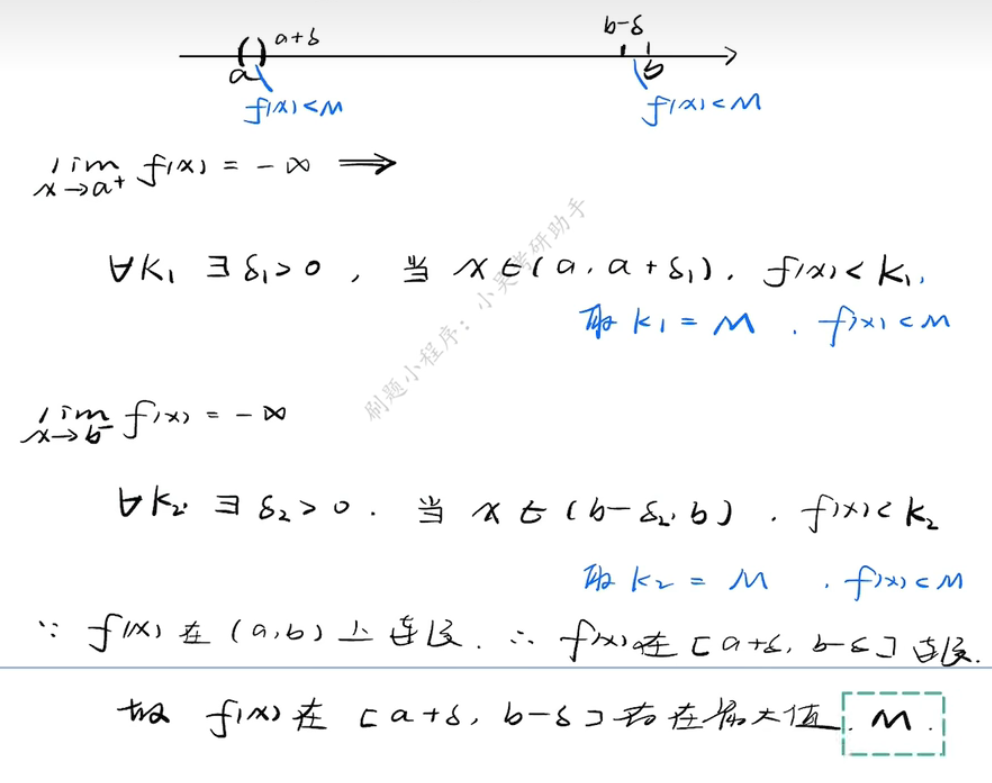 a+δ b-δ
a b
f(x)<M f(x)<M
lim x→a+ f(x) = -∞ ⟹
∀K₁ ∃ δ₁>0 , 当 x∈(a, a+δ₁). f(x)<K₁,
取 K₁ = M . f(x)<M
lim x→b- f(x) = -∞
∀K₂ ∃ δ₂>0 . 当 x∈(b-δ₂, b) . f(x)<K₂
取 K₂ = M . f(x)<M
∵ f(x) 在 (a,b) 上连续. ∴ f(x)在[a+δ, b-δ]连续.
故 f(x)在 [a+δ, b-δ]存在最大值 M.
刷题小程序：小吴考研助手